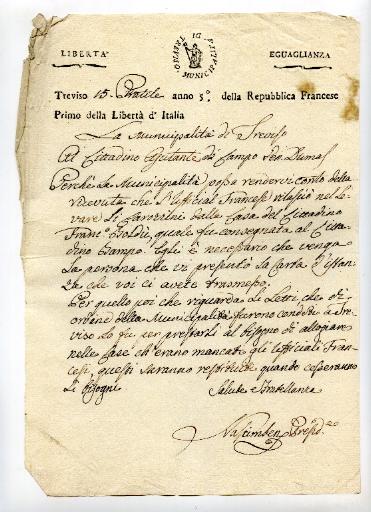 LIBERTA'
MUNICIPALITA DI TREVISO
EGUAGLIANZA
Treviso 15 Pratile anno 5.° della Repubblica Francese
Primo della Libertà d' Italia
La Municipalità di Treviso
Al Cittadino Ajutante di Campo Den Dumas
Perchè la Municipalità possa rendervi conto della
ricevuta che l'Ufficial Francese rilasiò nel le
vare li Cavezzini dalla Casa del Cittadino
Franc.° quale fu consegnata al Citta
dino Campo. Egli è necessario che venga
la persona che vi presentò la Carta d'istan
za che voi ci avete trasmesso.
Per quello poi che riguarda li Letti che d'
ordine della Municipalità furono condotti a Tre
viso per prestarli al bisogno di alloggiare
nelle Case ch'erano mancanti gli Ufficiali Fran
cesi, questi saranno restituiti quando cesseranno
li bisogni
Salute e Fratellanza
Presid.